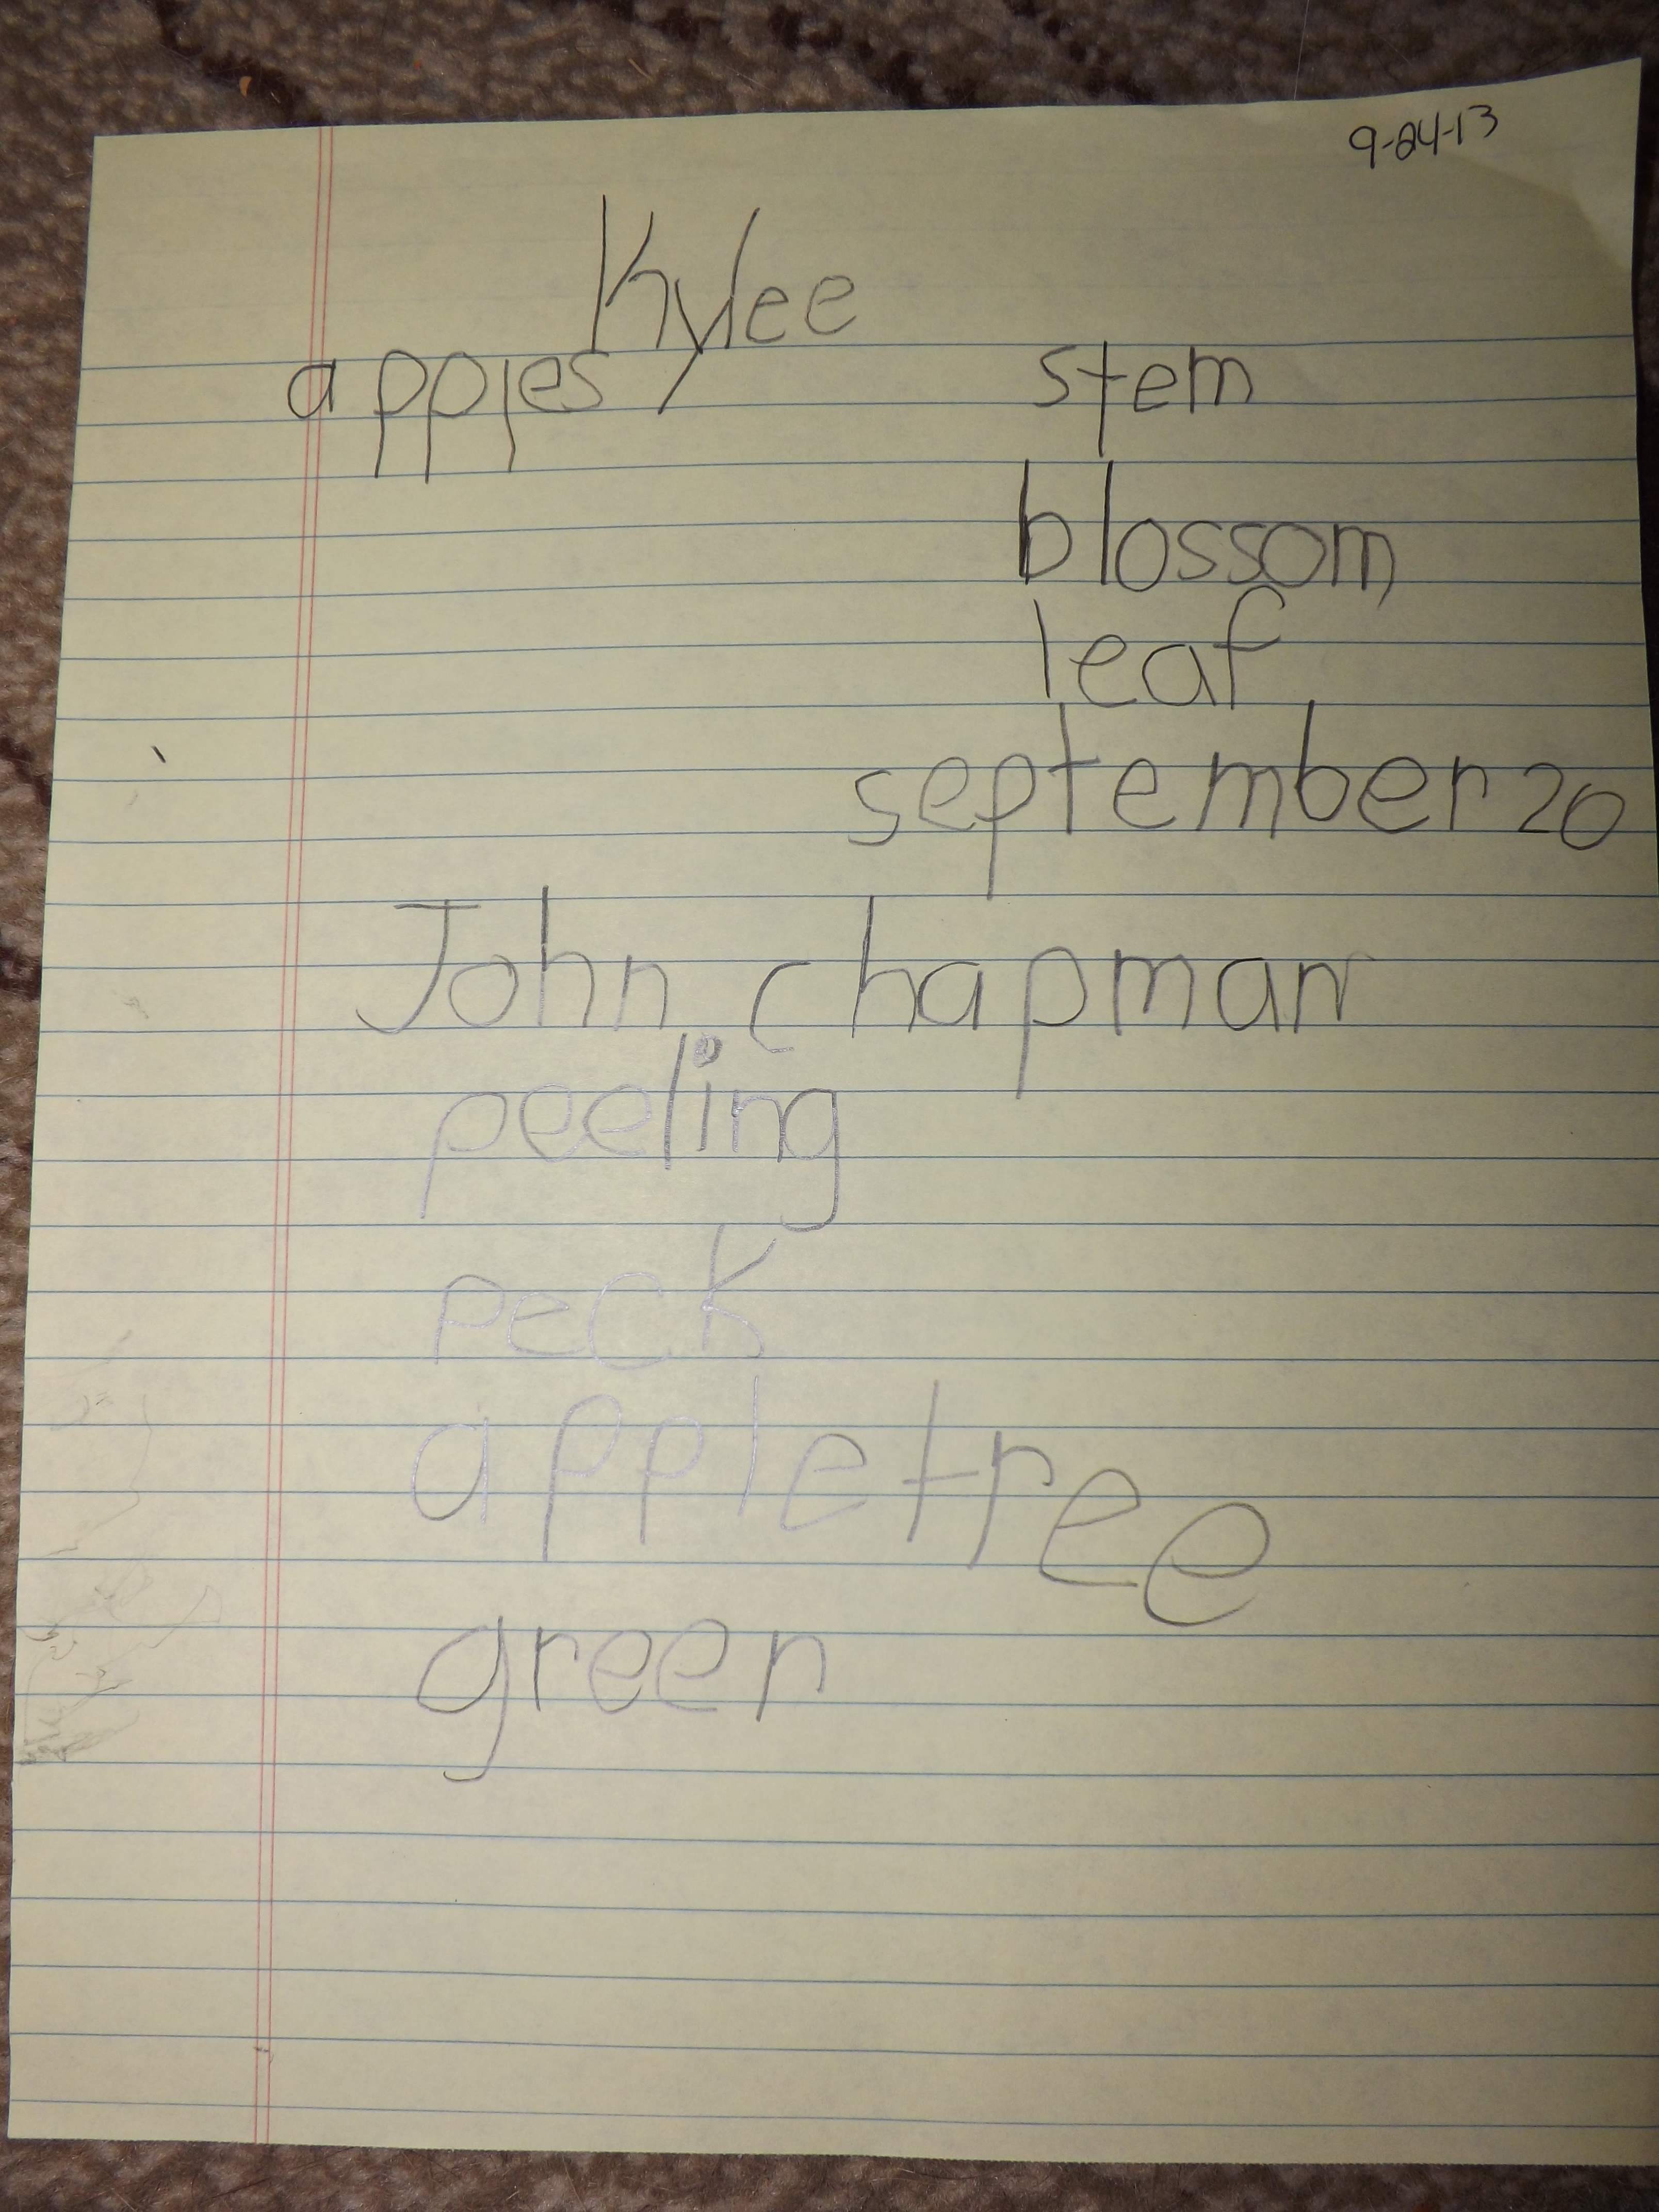 9-24-13
Kylee
apples stem
blossom
leaf
september 20
John chapman
peeling
peck
apple tree
green